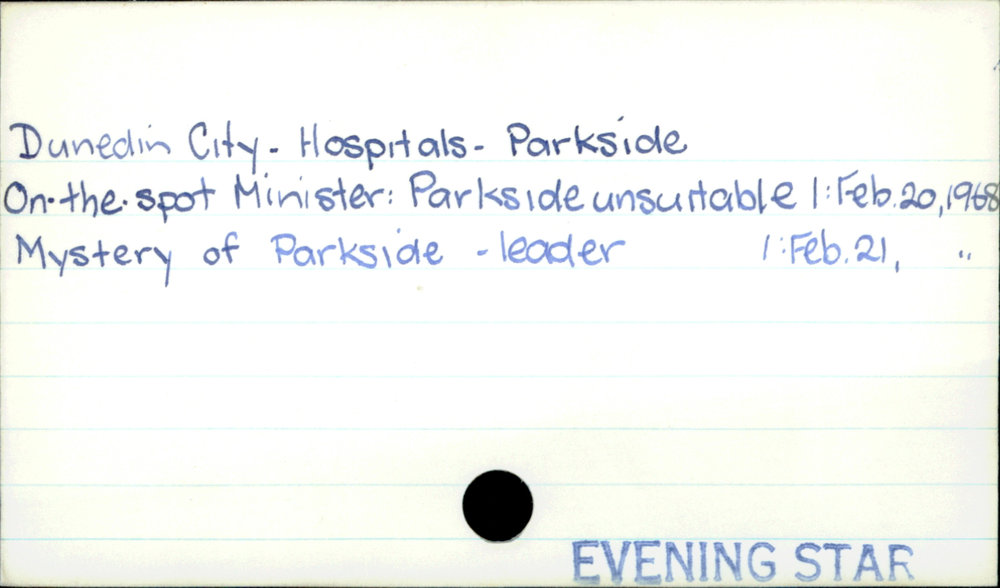 Dunedin City - Hospitals - Parkside
On-the-spot Minister: Parkside unsuitable 1:Feb.20,1968
Mystery of Parkside - leader 1:Feb.21, "
EVENING STAR